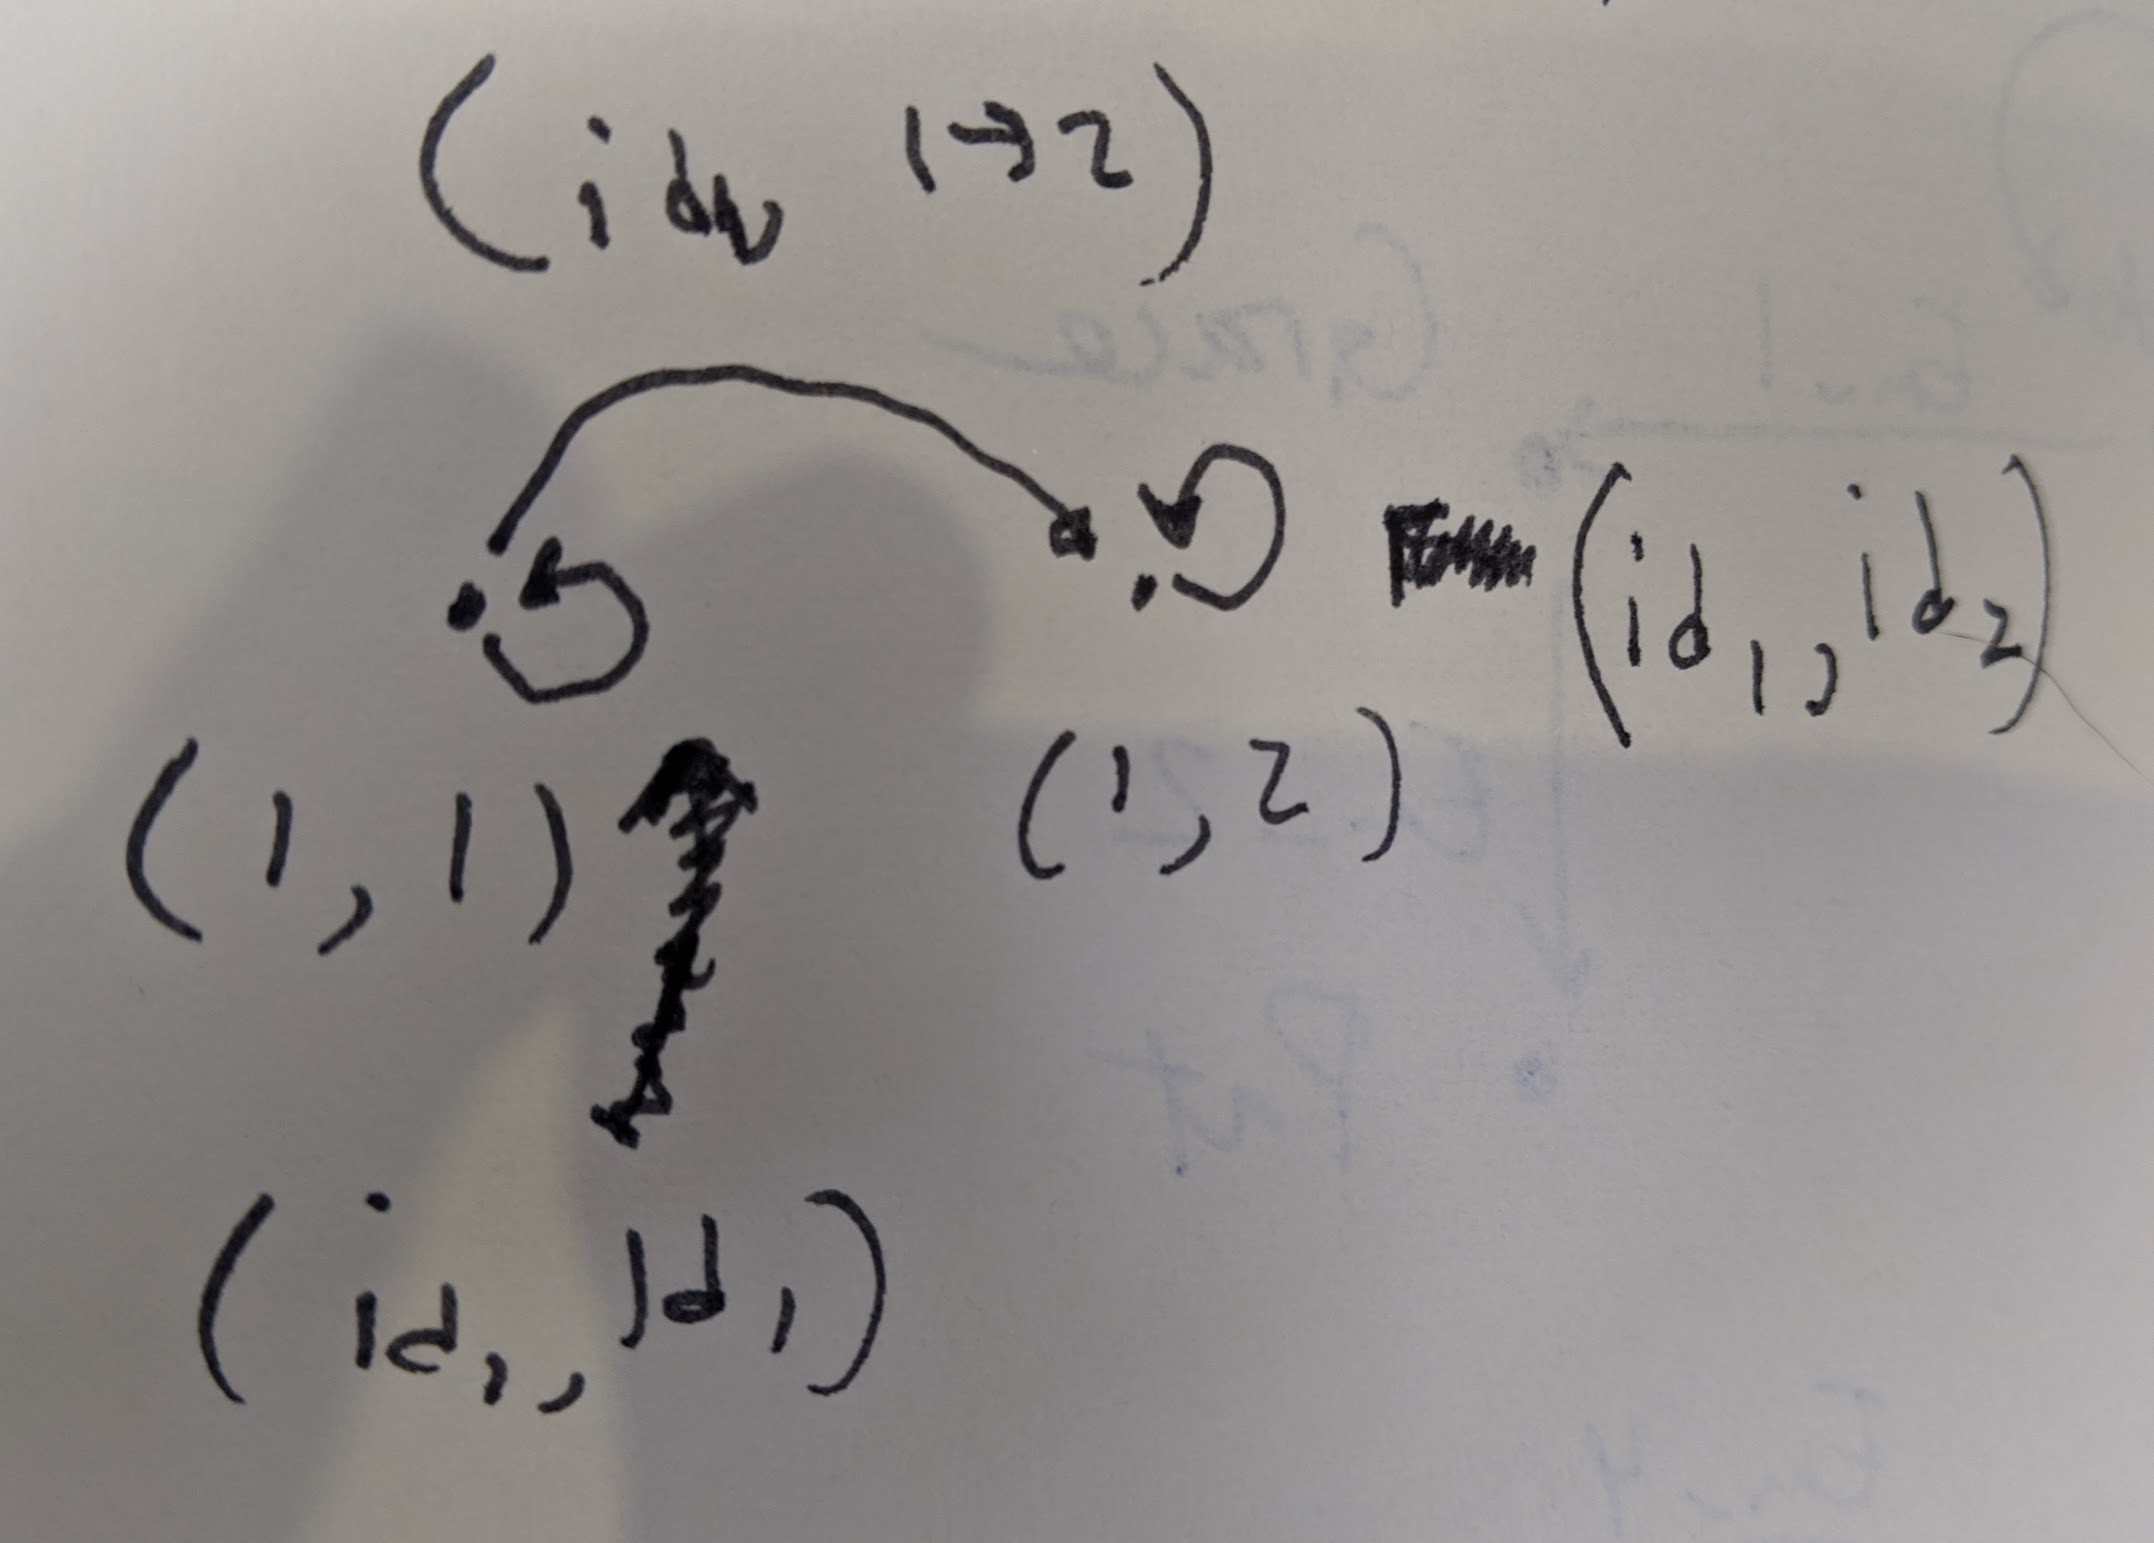 (id₁, 1→2)
(id₁, id₂)
(1, 1)
(1, 2)
(id₁, id₁)